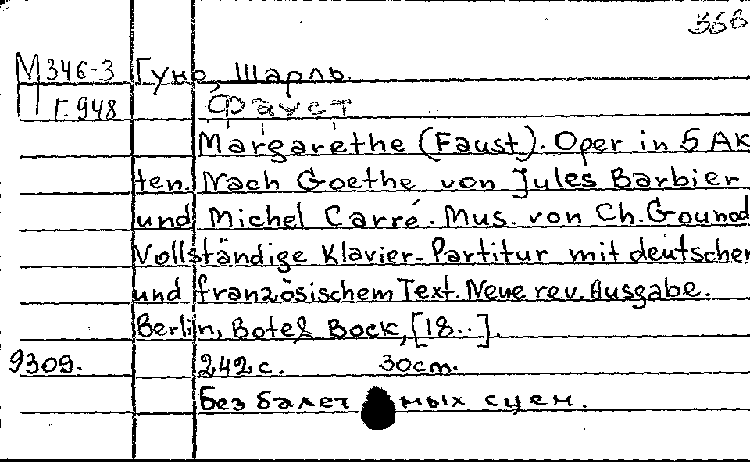 366
М346-3 Гуно, Шарль.
Г.948 Фауст
Margarethe (Faust). Oper in 5 Ak
ten. Nach Goethe von Jules Barbier
und Michel Carré. Mus. von Ch. Gounod
Vollständige Klavier-Partitur mit deutschem
und französischem Text. Neue rev. Ausgabe.
Berlin, Bote & Bock, [18..].
9309. 242 с. 30cm.
Без балетных сцен.